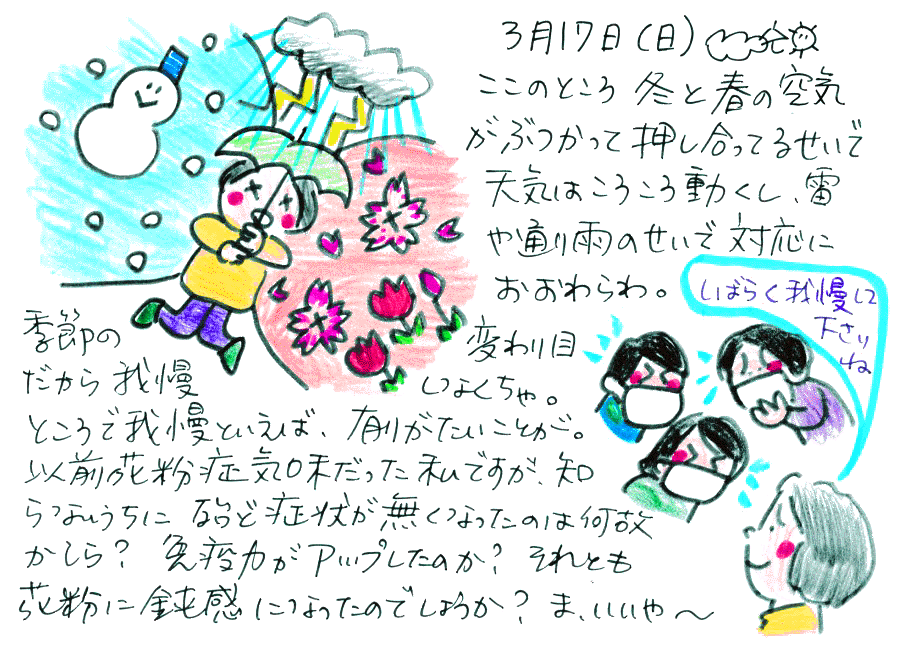 3月17日(日)
ここのところ 冬と春の空気
がぶつかって押し合ってるせいで
天気はころころ動くし、雷
や通り雨のせいで対応に
おおわらわ。
季節の変わり目
だから我慢しなくちゃ。
ところで我慢といえば、有りがたいことが。
以前花粉症気味だった私ですが、知
らないうちに 殆ど症状が無くなったのは何故
かしら? 免疫力がアップしたのか? それとも
花粉に鈍感になったのでしょうか? ま、いいや〜
しばらく我慢して
下さい
ね